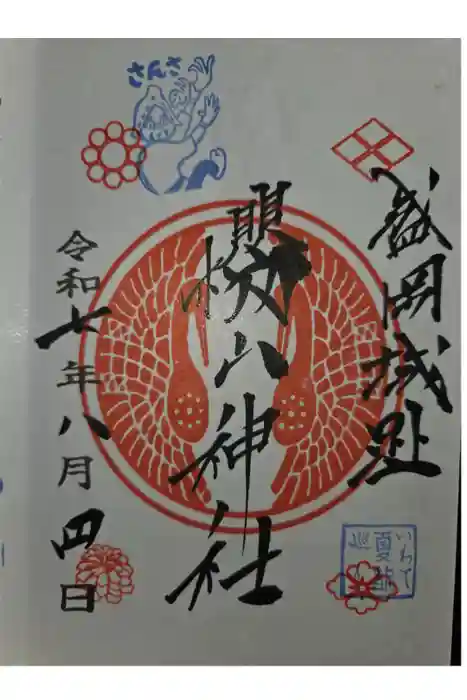 盛岡城趾
櫻山神社
令和七年八月四日
さんさ
いわて
夏詣
巡